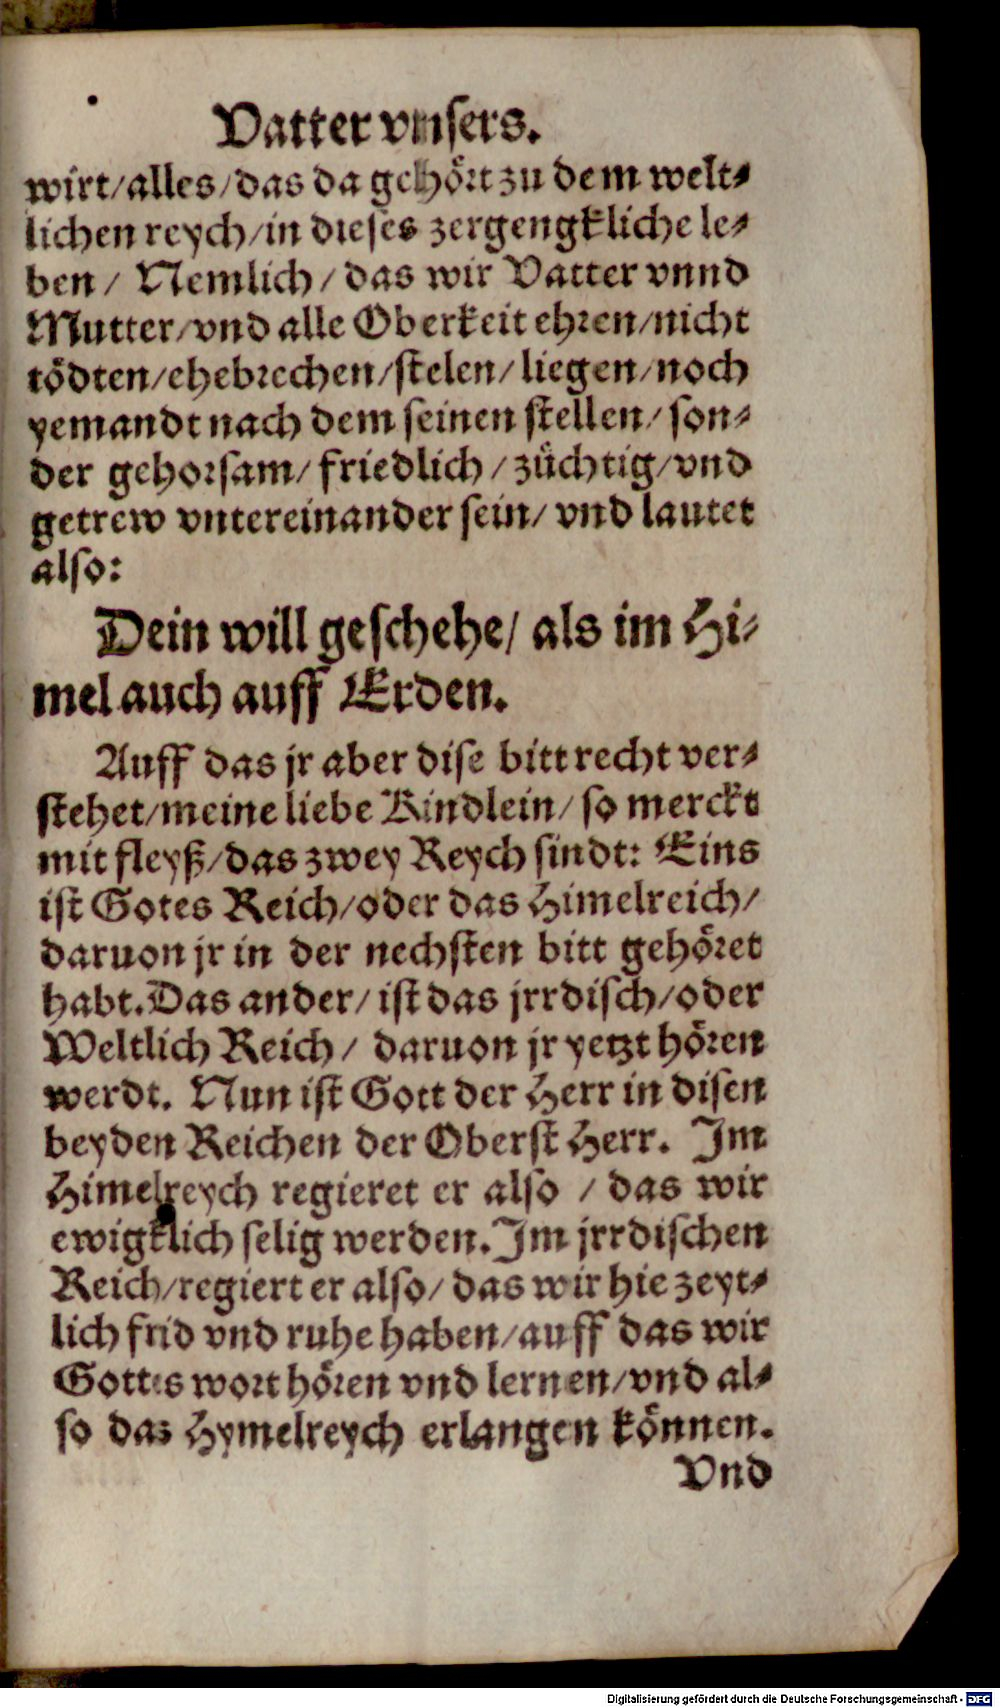 Vatter vnsers.
wirt/alles/das da gehört zu dem welt⸗
lichen reych/in dieses zergengkliche le⸗
ben/ Nemlich/ das wir Vatter vnnd
Mutter/vnd alle Oberkeit ehren/nicht
tödten/ehebrechen/stelen/liegen/noch
yemandt nach dem seinen stellen/son⸗
der gehorsam/friedlich/züchtig/vnd
getrew vntereinander sein/vnd lautet
also:
Dein will geschehe/ als im Hi⸗
mel auch auff Erden.
Auff das jr aber dise bitt recht ver⸗
stehet/meine liebe Kindlein/so merckt
mit fleyß/das zwey Reych sindt: Eins
ist Gotes Reich/oder das Himelreich/
daruon jr in der nechsten bitt gehöret
habt. Das ander/ ist das jrrdisch/oder
Weltlich Reich/ daruon jr yetzt hören
werdt. Nun ist Gott der Herr in disen
beyden Reichen der Oberst Herr. Im
Himelreych regieret er also / das wir
ewigklich selig werden. Im jrrdischen
Reich/regiert er also/das wir hie zeyt⸗
lich frid vnd ruhe haben/auff das wir
Gottes wort hören vnd lernen/vnd al⸗
so das Hymelreych erlangen können.
Vnd
Digitalisierung gefördert durch die Deutsche Forschungsgemeinschaft - DFG